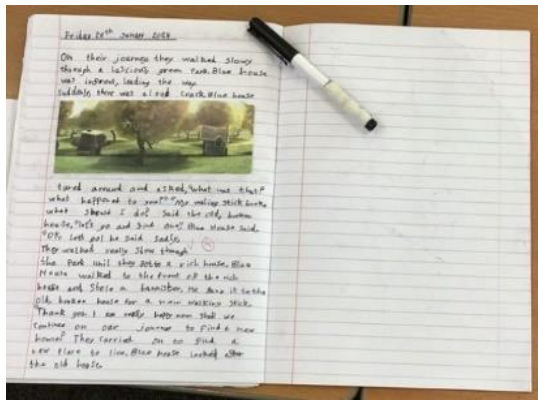 Friday 20th January 2024
On their journey they walked slowly
through a luscious green Park. Blue house
was infront, leading the way.
Suddenly there was a loud Crack. Blue house
turd around and asked, "What was that?
what happened to you?" "My walking stick broke
what should I do? Said the old, broken
house, "let's go and find one" Blue House said.
"OK, Lets go! he said sadly.
They walked really slow through
the Park until they got to a rich house. Blue
House walked to the front of the rich
house and Stole a bannister. He gave it to the
old, broken house for a new walking stick.
"Thank you I am really happy now shall we
continue on our journey to find a new
home?" They carried on to find a
new place to live. Blue house looked after
the old house.